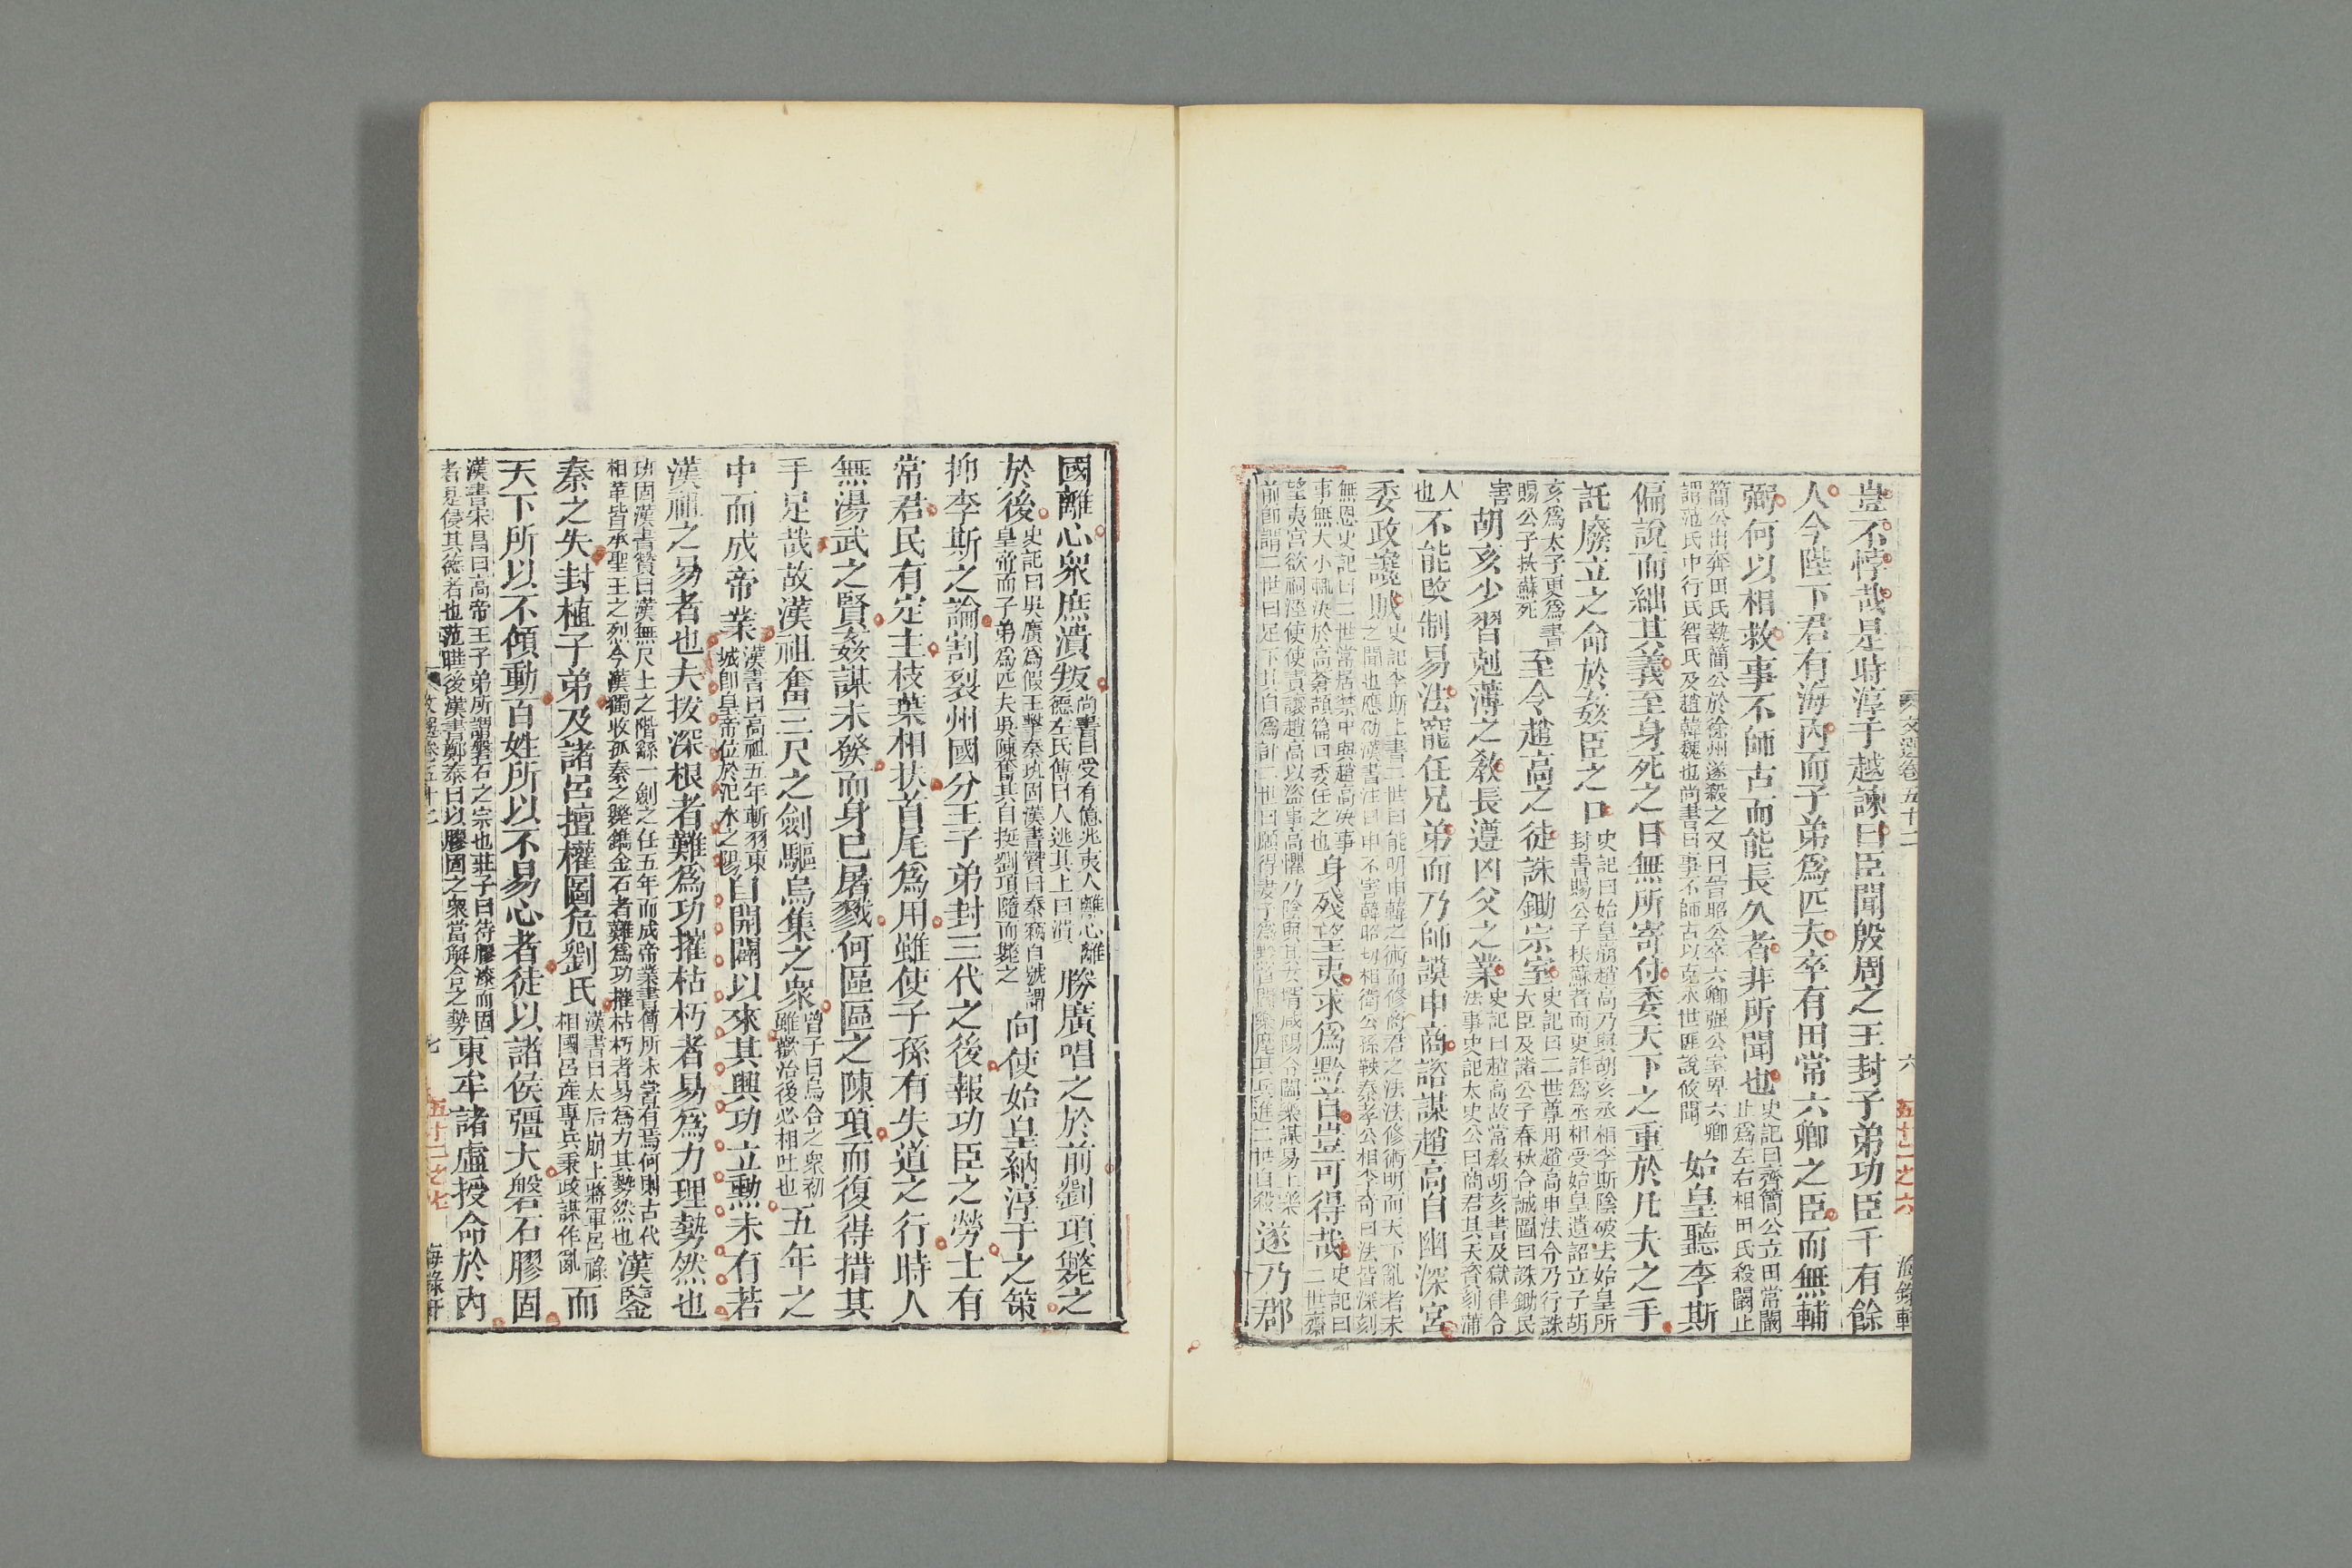 文選卷五十二　六　五十二之六　海錄軒
豈不悖哉是時淳于越諫曰臣聞殷周之王封子弟功臣千有餘
人今陛下君有海內而子弟爲匹夫卒有田常六卿之臣而無輔
弼何以相救事不師古而能長久者非所聞也史記曰齊簡公立田常闞止爲左右相田氏殺闞止
簡公出奔田氏執簡公於徐州遂殺之又曰晉昭公卒六卿强公室卑六卿謂范氏中行氏智氏及趙韓魏也尚書曰事不師古以克永世匪說攸聞始皇聽李斯
偏說而絀其義至身死之日無所寄付委天下之重於凡夫之手
託廢立之命於姦臣之口史記曰始皇崩趙高乃與胡亥丞相李斯陰破去始皇所封書賜公子扶蘇者而更詐爲丞相受始皇遺詔立子胡
亥爲太子更爲書賜公子扶蘇死至令趙高之徒誅鋤宗室史記曰二世尊用趙高申法令乃行誅大臣及諸公子春秋合誠圖曰誅鋤民
害胡亥少習剋薄之敎長遵凶父之業史記曰趙高故常敎胡亥書及獄律令法事史記太史公曰商君其天資刻薄
人也不能改制易法寵任兄弟而乃師謨申商諮謀趙高自幽深宮
委政讒賊史記李斯上書二世曰能明申韓之術而修商君之法法修術明而天下亂者未之聞也應劭漢書注曰申不害韓昭侯相衛公孫鞅秦孝公相李奇曰法皆深刻
無恩史記曰二世常居禁中與趙高決事事無大小輒決於高蒼頡篇曰委任之也身殘望夷求爲黔首豈可得哉史記曰二世齋
望夷宮欲祠涇使使責讓趙高以盜事高懼乃陰與其女壻咸陽令閻樂謀易上樂前卽謂二世曰足下其自爲計二世曰願得妻子爲黔首閻樂麾其兵進二世自殺遂乃郡
國離心衆庶潰叛尚書曰受有億兆夷人離心離德左氏傳曰人逃其上曰潰勝廣唱之於前劉項斃之
於後史記曰吳廣爲假王擊秦班固漢書贊曰秦竊自號謂皇帝而子弟爲匹夫吳陳奮其白挺劉項隨而斃之向使始皇納淳于之策
抑李斯之論割裂州國分王子弟封三代之後報功臣之勞士有
常君民有定主枝葉相扶首尾爲用雖使子孫有失道之行時人
無湯武之賢姦謀未發而身已屠戮何區區之陳項而復得措其
手足哉故漢祖奮三尺之劍驅烏集之衆曾子曰烏合之衆初雖歡洽後必相吐也五年之
中而成帝業漢書曰高祖五年斬羽東城卽皇帝位於汜水之陽自開闢以來其興功立勲未有若
漢祖之易者也夫拔深根者難爲功摧枯朽者易爲力理勢然也
班固漢書贊曰漢無尺土之階繇一劍之任五年而成帝業書傳所未嘗有焉何則古代相革皆承聖王之烈今漢獨收孤秦之斃鐫金石者難爲功摧枯朽者易爲力其勢然也漢鑒
秦之失封植子弟及諸呂擅權圖危劉氏漢書曰太后崩上將軍呂祿相國呂產專兵秉政謀作亂而
天下所以不傾動百姓所以不易心者徒以諸侯彊大磐石膠固
漢書宋昌曰高帝王子弟所謂磐石之宗也莊子曰待膠漆而固者是侵其德者也范曄後漢書鄭泰曰以膠固之衆當解合之勢東牟諸虛授命於內
文選卷五十二　七　五十二之七　海錄軒